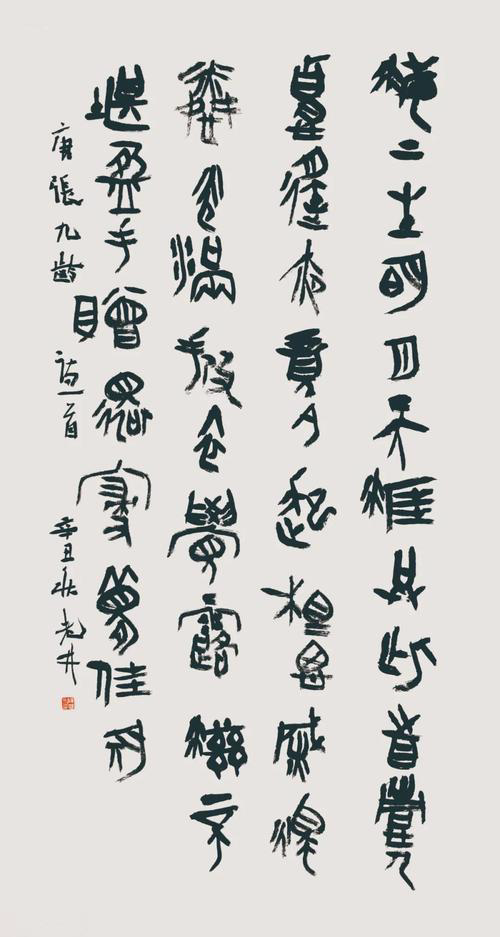 海上生明月天涯共此時情人
怨遥夜竟夕起相思滅燭
憐光滿披衣覺露滋不
堪盈手贈還寢夢佳期
唐張九齡詩一首 辛丑秋老井